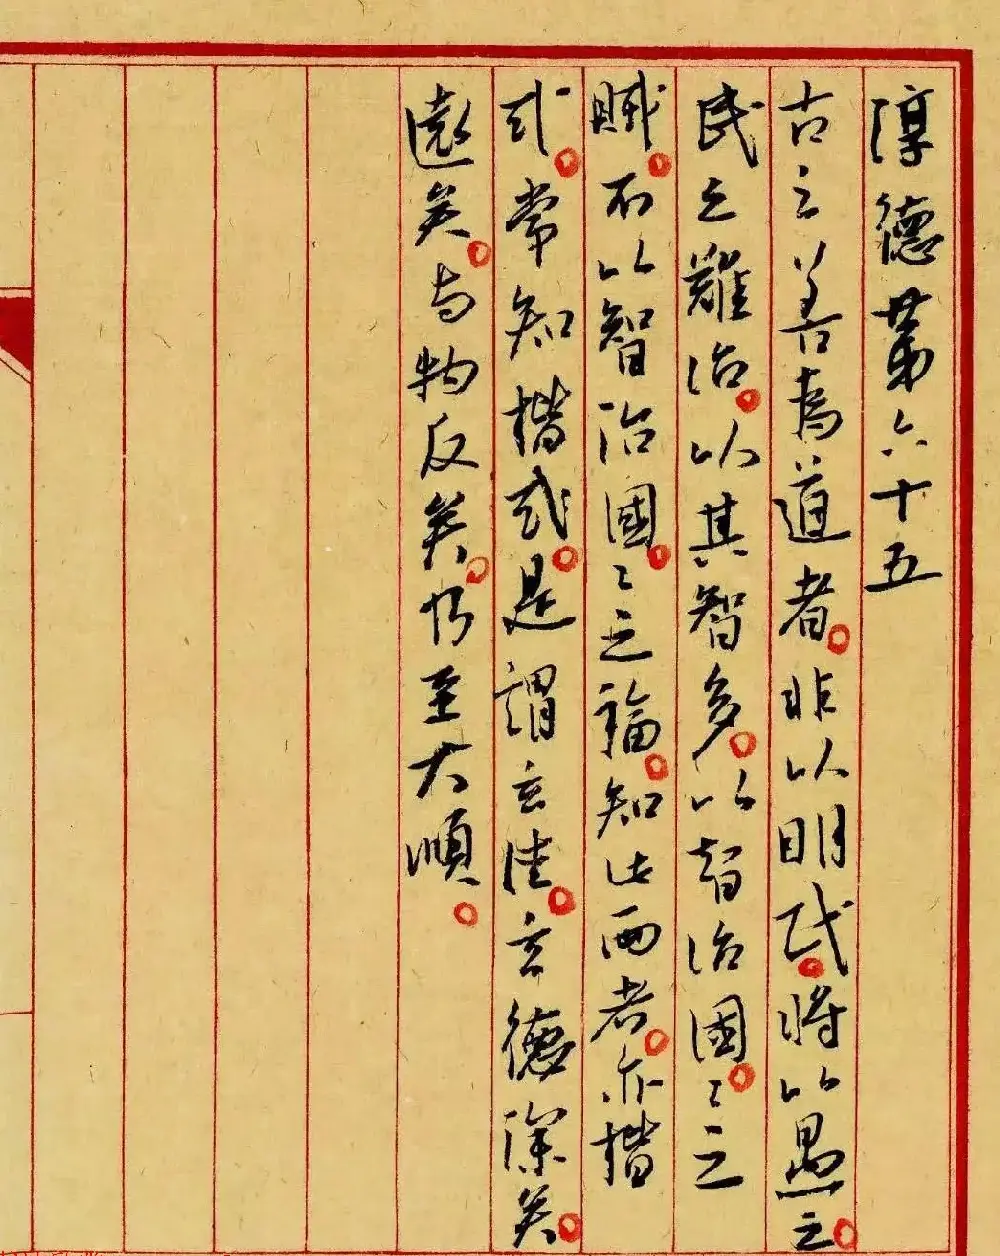 淳德第六十五
古之善為道者。非以明民。將以愚之。
民之難治。以其智多。以智治國。〻之
賊。不以智治國。〻之福。知此兩者。亦楷
式。常知楷式。是謂玄德。玄德深矣。
遠矣。与物反矣。乃至大順。